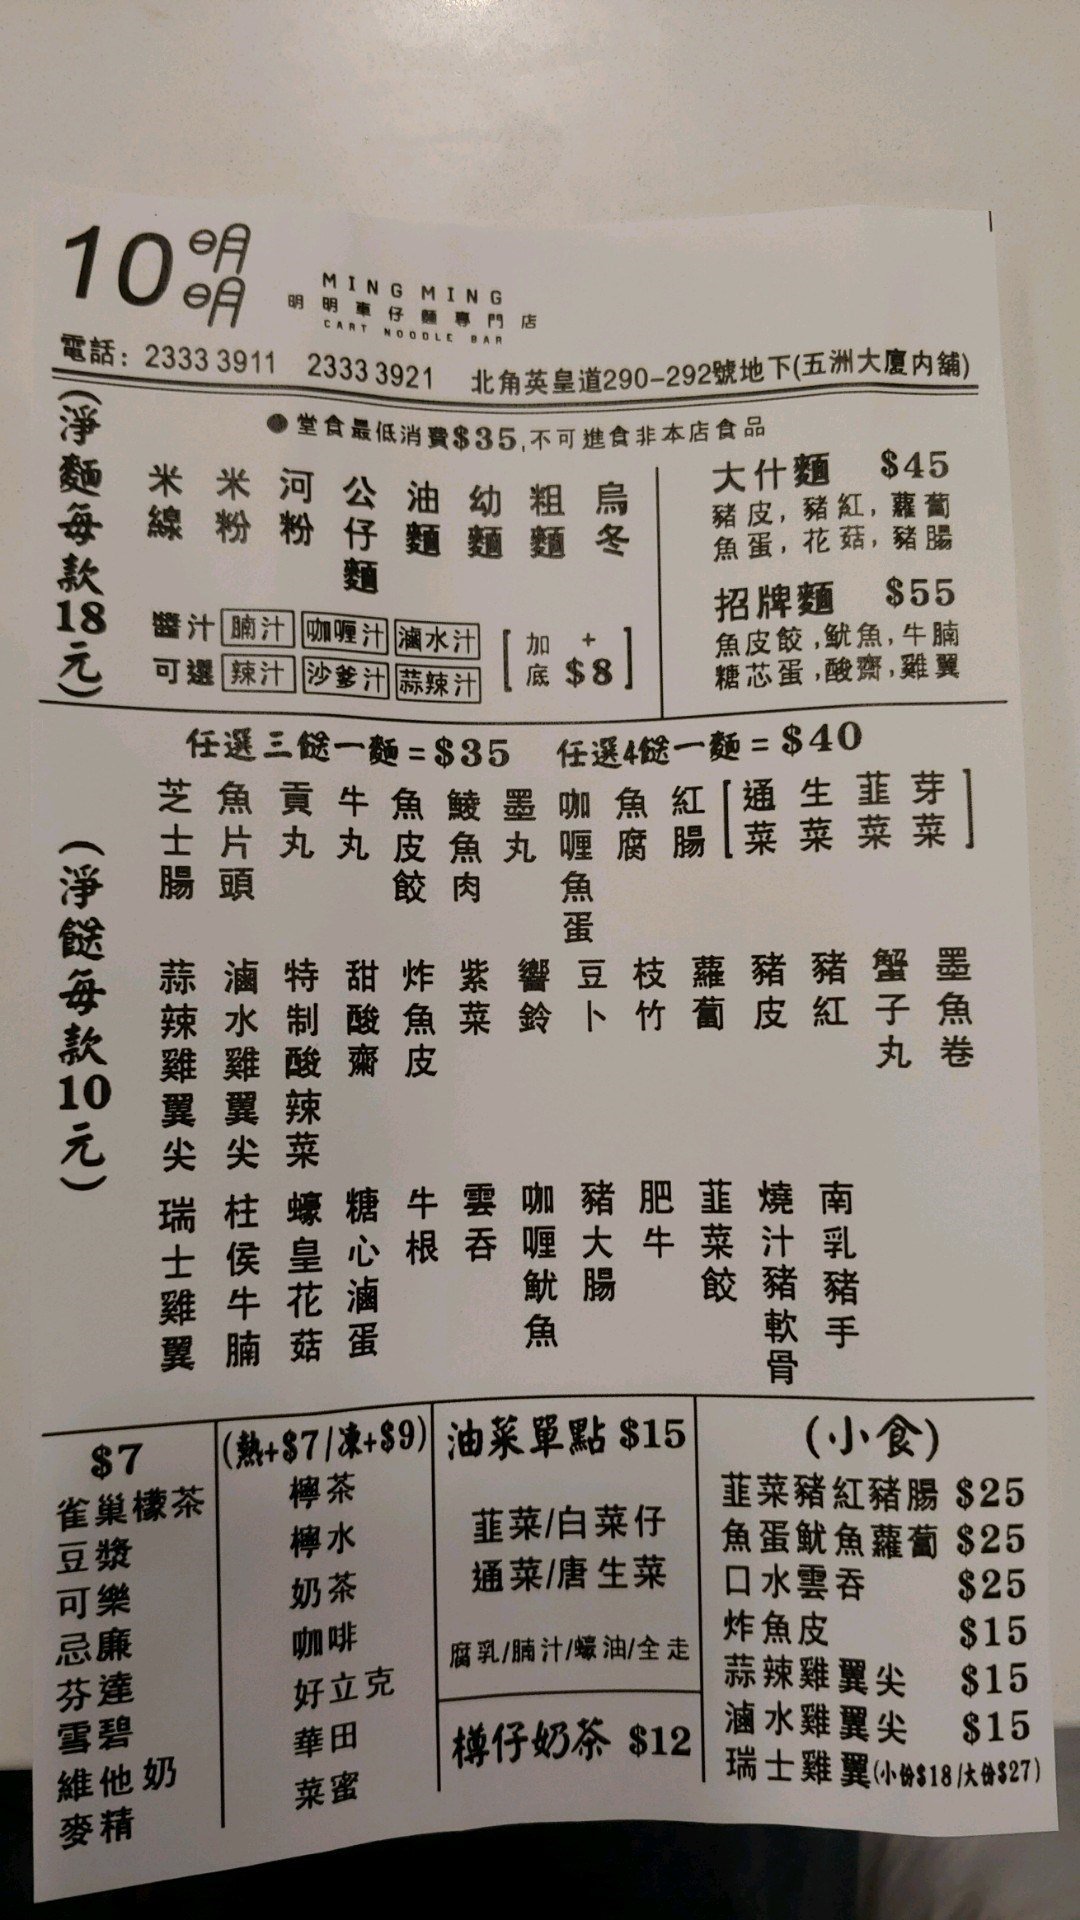 10 明明
MING MING
明明車仔麵專門店
CART NOODLE BAR
電話: 2333 3911 2333 3921 北角英皇道290-292號地下(五洲大廈內舖)
●堂食最低消費$35,不可進食非本店食品
(淨麵每款18元)
米線
米粉
河粉
公仔麵
油麵
幼麵
粗麵
烏冬
醬汁可選
腩汁 咖喱汁 滷水汁
辣汁 沙爹汁 蒜辣汁
[加底 +$8]
大什麵 $45
豬皮, 豬紅, 蘿蔔
魚蛋, 花菇, 豬腸
招牌麵 $55
魚皮餃,魷魚,牛腩
糖芯蛋,酸齋,雞翼
任選三餸一麵=$35 任選4餸一麵=$40
(淨餸每款10元)
芝士腸
魚片頭
貢丸
牛丸
魚皮餃
鯪魚肉
墨丸
咖喱魚蛋
魚腐
紅腸
[通菜
生菜
韮菜
芽菜]
蒜辣雞翼尖
滷水雞翼尖
特制酸辣菜
甜酸齋
炸魚皮
紫菜
響鈴
豆卜
枝竹
蘿蔔
豬皮
豬紅
蟹子丸
墨魚卷
瑞士雞翼
柱侯牛腩
蠔皇花菇
糖心滷蛋
牛根
雲吞
咖喱魷魚
豬大腸
肥牛
韮菜餃
燒汁豬軟骨
南乳豬手
$7
雀巢檬茶
豆漿
可樂
忌廉
芬達
雪碧
維他奶
麥精
(熱+$7/凍+$9)
檸茶
檸水
奶茶
咖啡
好立克
華田
菜蜜
油菜單點 $15
韮菜/白菜仔
通菜/唐生菜
腐乳/腩汁/蠔油/全走
樽仔奶茶 $12
(小食)
韮菜豬紅豬腸 $25
魚蛋魷魚蘿蔔 $25
口水雲吞 $25
炸魚皮 $15
蒜辣雞翼尖 $15
滷水雞翼尖 $15
瑞士雞翼(小份$18/大份$27)